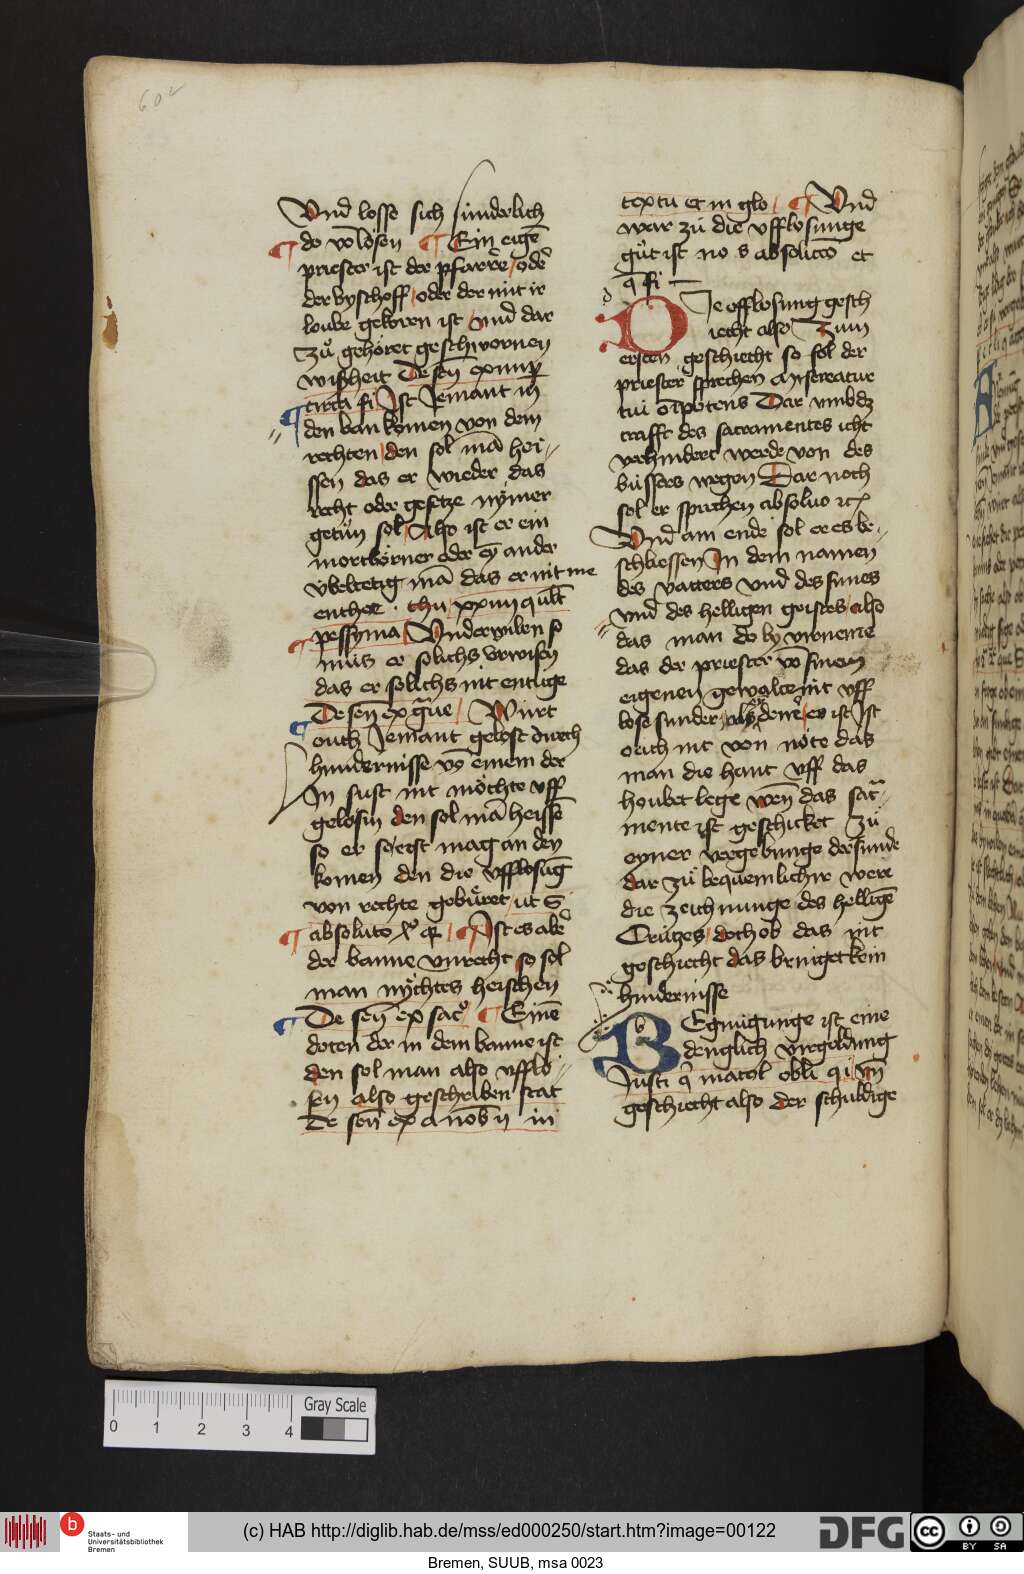 602
Vnd losse sich sunderlich
do võ lösen ¶ Ein eigē
priester ist der pfarrēr / odē
der byschoff / oder der mit ir
loube gekoren ist / vnd dar
zů gehöret geschwornen
wißheit De sen̄ ex
circa fi Ist Jemant in
den ban komen von dem
rechten / den sol mā hei-
ssen das er wieder das
recht oder gesetze nÿmer
getůn sol / Also ist er ein
mortbörner oder eȳ ander
vbeltetig mā das er nit me
enthöe . thu / xxiiij q
pessyma / Vnderwilen so
můs er solichs vrwisen
das er solichs nit entuge
De sen ex gue / Würt
ouch Jemant gelost durch
hindernisse vō einem der
In sust nit möchte vff
gelösin den sol mā heissē
so er so erst mag an den
komen den die vfflosūg
von rechte gebüret / ut S
absoluto ¶ Ist es abē
der banne vnrecht so sol
man nÿchtes heischen
De sen̄ ex sac ¶ Einē
doten der in dem banne ist
den sol man also vfflo-
sen also geschriben stat
De sen̄ ex a nob ij in
textu et in glo / ¶ Vnd
war zů die vfflosunge
gůt ist no s absolutō et
q̄ fi
d
Die offlosung gesch
iecht also Zum
ersten geschiecht so sol der
priester sprechen Misereatur
tui oīpotens Dar vmb dz
crafft des sacramentes icht
verhindert werde von des
büssers wegen Dar noch
sol er sprichen absoluo rc
Vnd am ende sol er es be-
schliessen In dem namen
des vatters vnd des sunes
vnd des helligen geistes / also
das man do by virneme
das der priester võ sinem
eigenen gewalte nit vff
lose sunder als denē er ist Ist
ouch nit von nöte das
man die hant vff das
houbet lege wen̄ das sacra-
mente ist geschicket zů
eyner vergebunge der sunde
dar zů bequemlicher were
die zeichnunge des helligē
Crützes / doch ob das nit
geschiecht das bringet kein
hindernisse
b
Begnügunge ist eine
denglich virgeldung
Iusti q matol obli qi vn̄
geschiecht also der schuldige
0 1 2 3 4
Gray Scale
b
Staats- und
Universitätsbibliothek
Bremen
(c) HAB http://diglib.hab.de/mss/ed000250/start.htm?image=00122
DFG
cc
BY SA
Bremen, SUUB, msa 0023